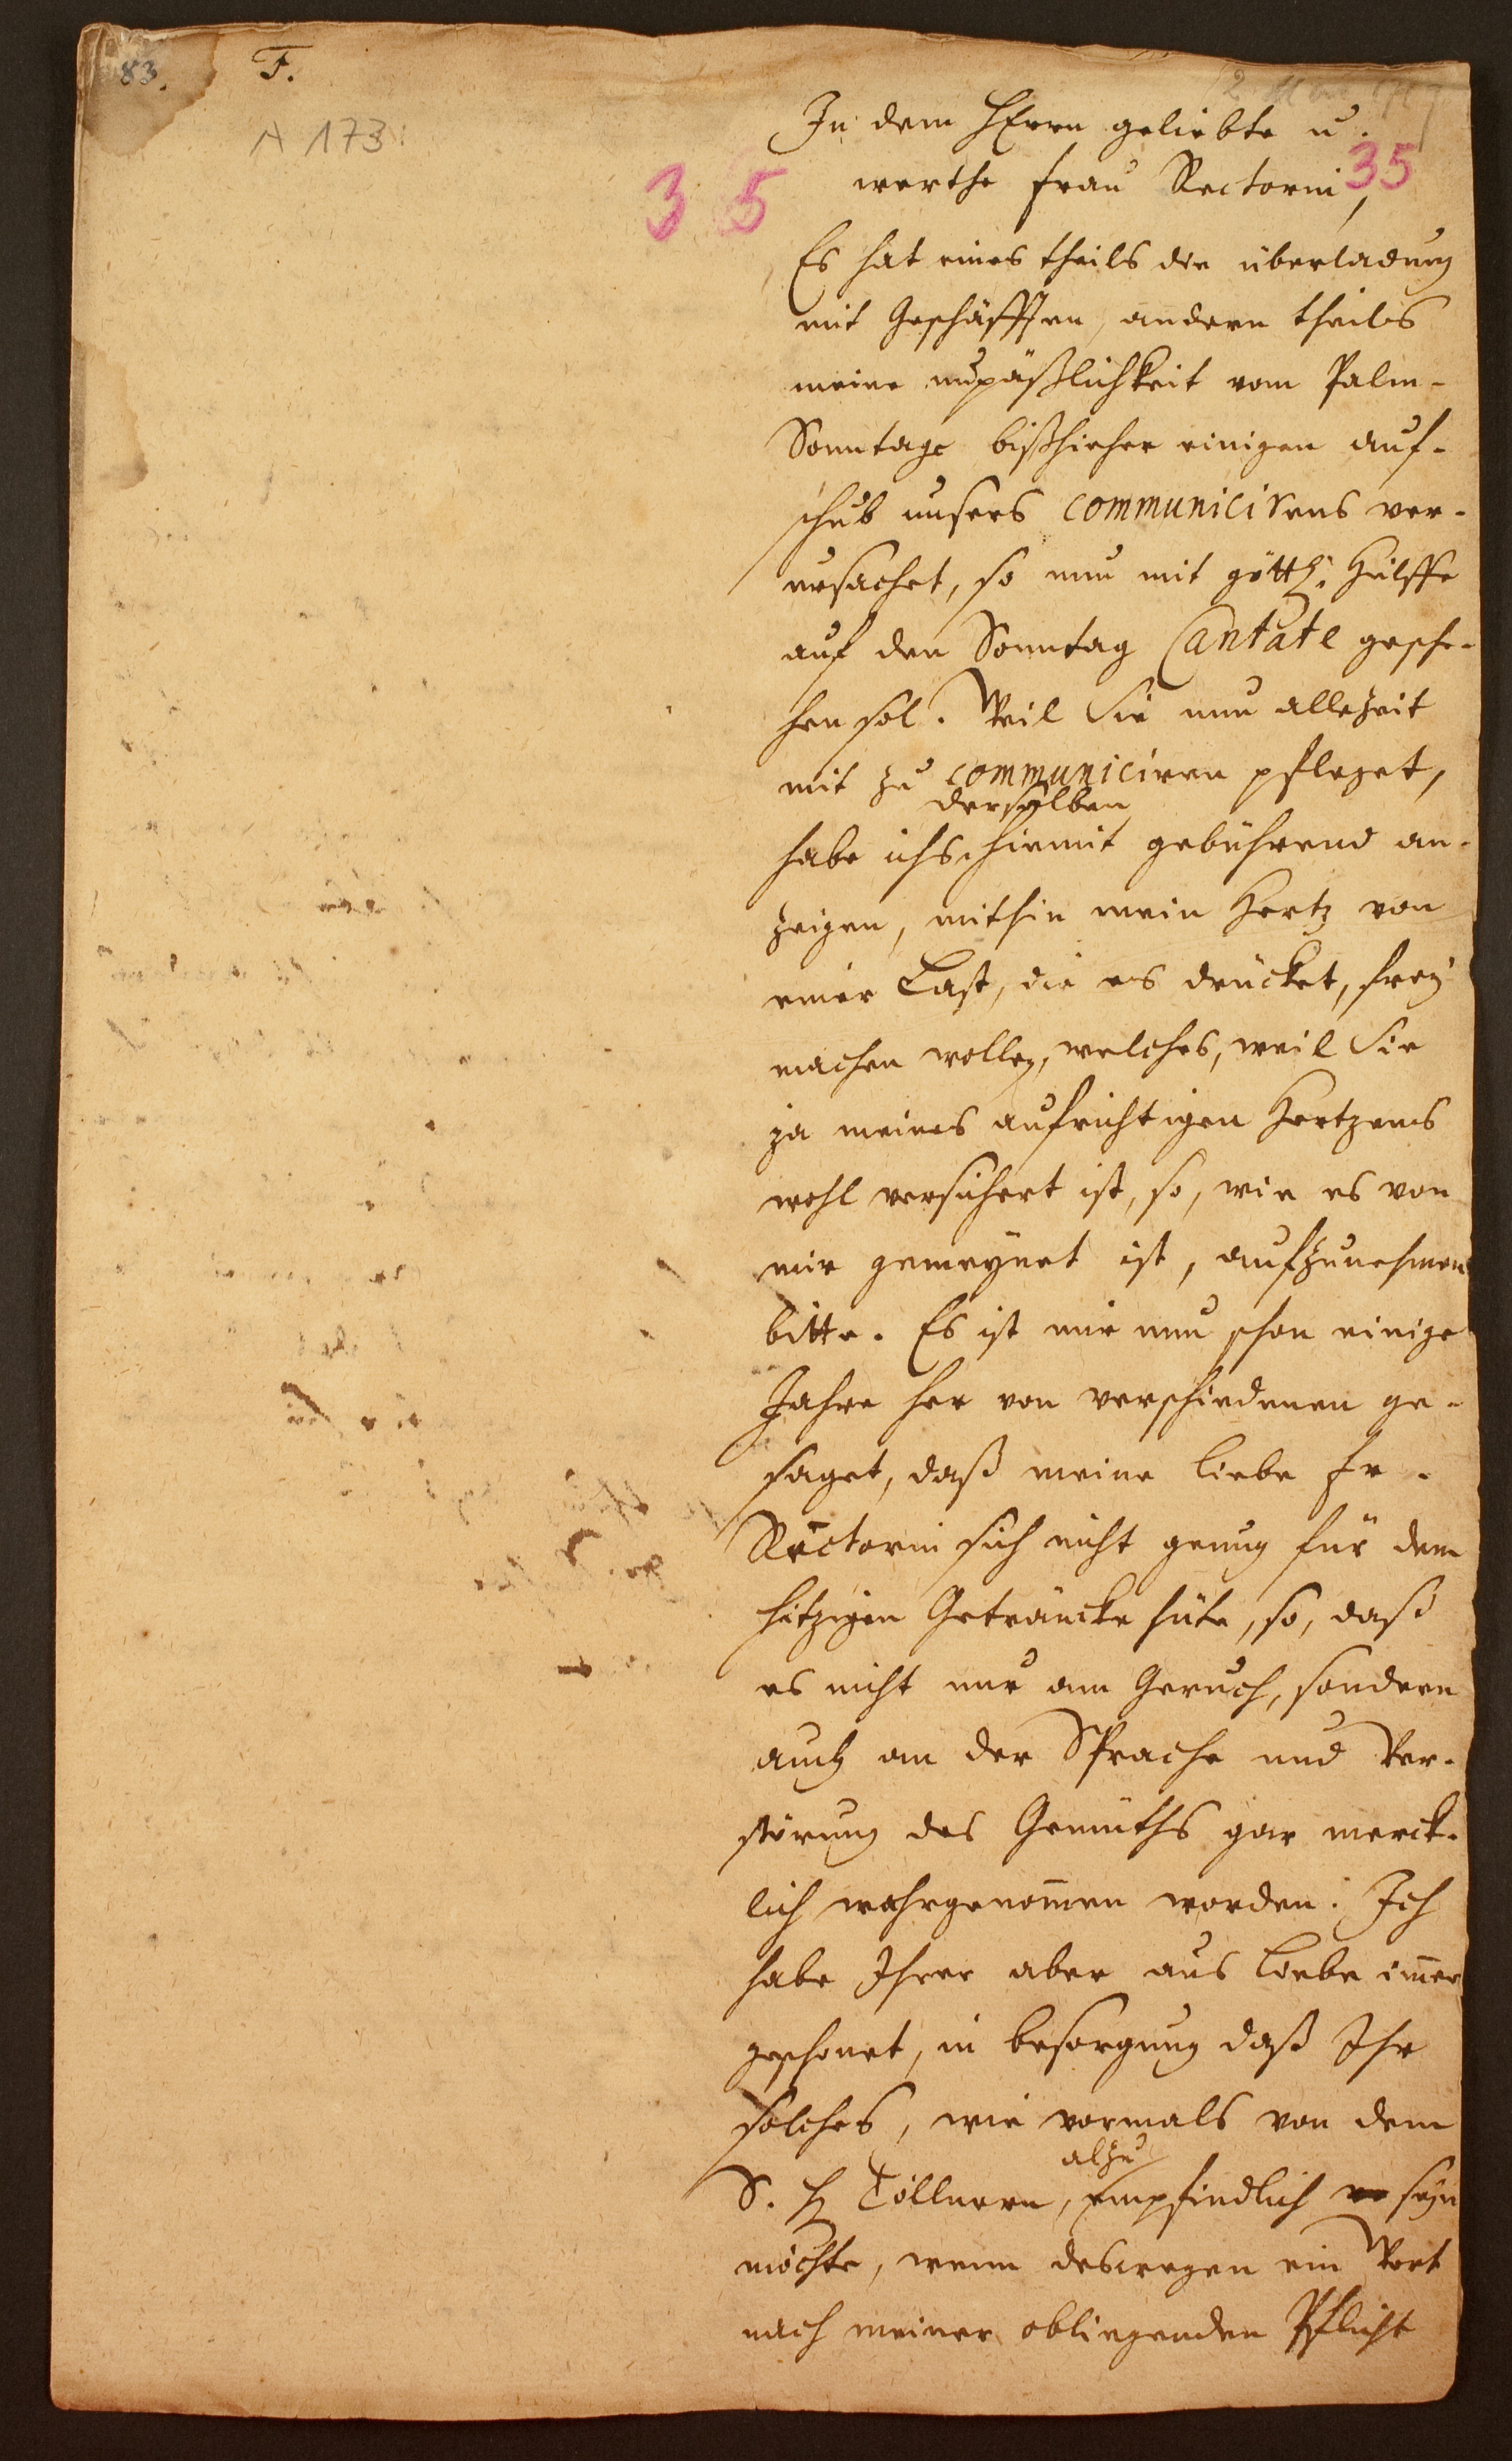 83.
F.
A 173.
35
In dem HErrn geliebte u.
werthe Frau Rectorin,
35
Es hat eines theils die überladung
mit Geschäfften, andern theils
meine unpäßlichkeit vom Palm-
Sonntage bißhieher einigen auf-
schub unsers communicirens ver-
ursachet, so nun mit göttl. Hülffe
auf den Sonntag Cantate gesche-
hen sol. Weil Sie nun allezeit
mit zu communiciren pfleget,
derselben
habe ichs hiemit gebührend an-
zeigen, mithin mein Hertz von
einer Last, die es drücket, frey
machen wollen, welches, weil Sie
ja meines aufrichtigen Hertzens
wohl versichert ist, so, wie es von
mir gemeynet ist, aufzunehmen
bitte. Es ist mir nun schon einige
Jahre her von verschiedenen ge-
saget, daß meine liebe Fr.
Rectorin sich nicht genug für dem
hitzigen Geträncke hüte, so, daß
es nicht nur am Geruch, sondern
auch an der Sprache und Ver-
störung des Gemüths gar merck-
lich wahrgenom̅en worden. Ich
habe Ihrer aber aus Liebe im̅er
geschonet, in besorgung daß Ihr
solches, wie vormals von dem
alzu
S. H Töllnern, empfindlich seyn
möchte, wenn deswegen ein Wort
nach meiner obliegenden Pflicht